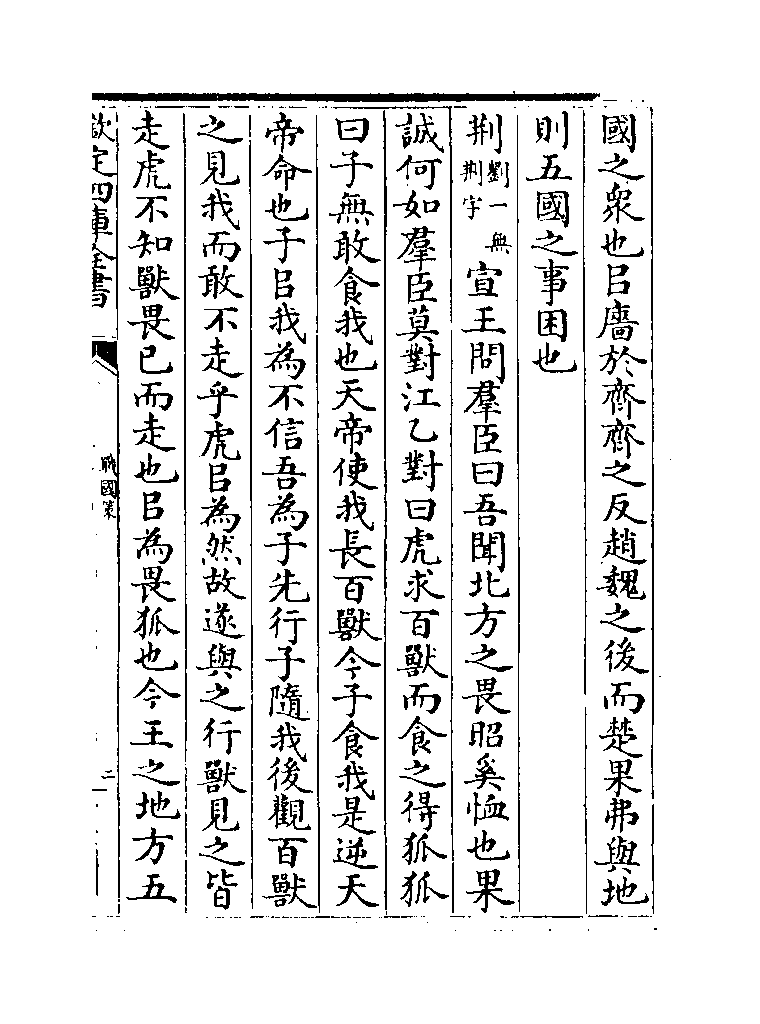 國之衆也㠯廧於齊齊之反趙魏之後而楚果弗與地
則五國之事困也
荆劉一無荆字宣王問羣臣曰吾聞北方之畏昭奚恤也果
誠何如羣臣莫對江乙對曰虎求百獸而食之得狐狐
曰子無敢食我也天帝使我長百獸今子食我是逆天
帝命也子㠯我為不信吾為子先行子隨我後觀百獸
之見我而敢不走乎虎㠯為然故遂與之行獸見之皆
走虎不知獸畏已而走也㠯為畏狐也今王之地方五
欽定四庫全書
戰國策
二